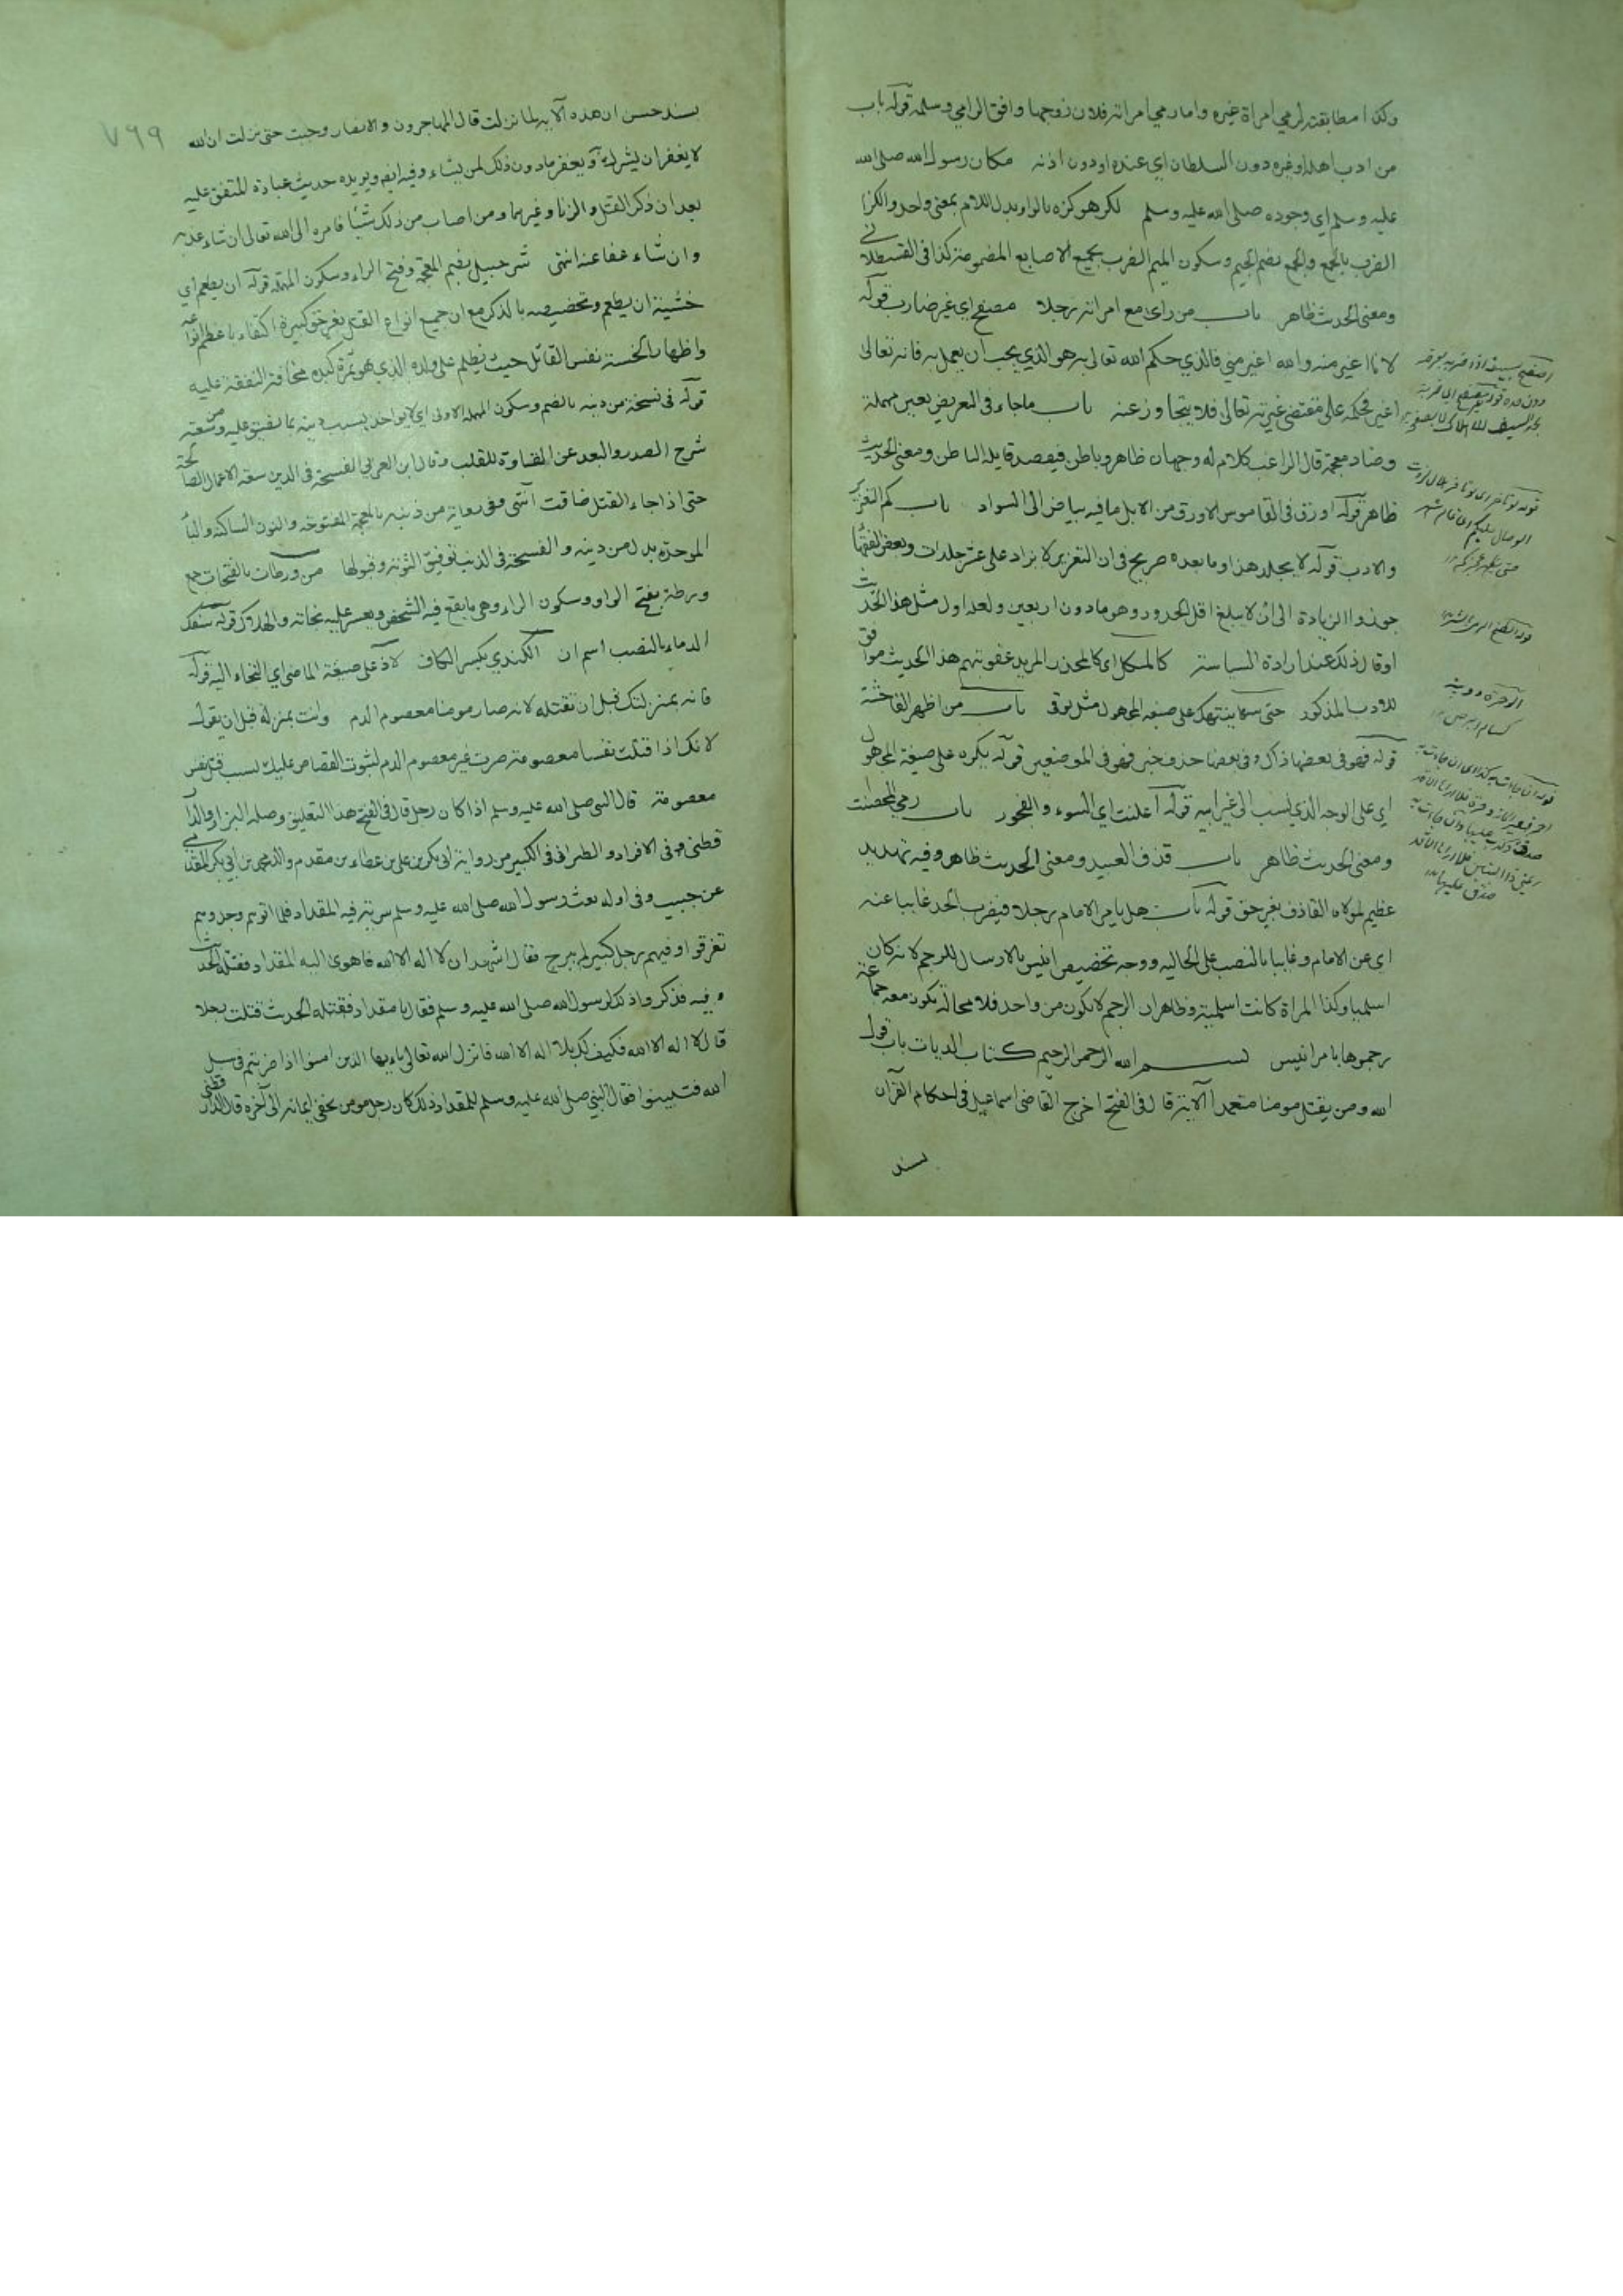 وكذا مطابقته لرمي امراة غيره واما رمي امراته فلان زوجها وافق الرامي وسلمه قوله باب
من ادب اهله او غيره دون السلطان اي عنده او دون اذنه مكان رسول الله صلى الله
عليه وسلم اي وجوده صلى الله عليه وسلم لكز هو كزه بالواو بدل اللام بمعنى واحد والكز
الضرب بالجمع والجمع بضم الجيم وسكون الميم الضرب بجميع الاصابع المضمومة كذا في القسطلاني
ومعنى الحديث ظاهر باب من راى مع امراته رجلا مصفح اي غير ضارب قوله
لانا اغير منه والله اغير مني فالذي حكم الله تعالى به هو الذي يجب ان يعمل به فانه تعالى
اغير فحكمه على مقتضى غيرته تعالى فلا يتجاوز عنه باب ما جاء في التعريض بعين مهملة
وضاد معجمة قال الراغب كلام له وجهان ظاهر وباطن فيقصد قايله الباطن ومعنى الحديث
ظاهر قوله اورق في القاموس الاورق من الابل ما فيه بياض الى السواد باب كم التعزير
والادب قوله لا يجلد هذا وما بعده صريح في ان التعزير لا يزاد على عشر جلدات وبعض الفقها
جوزوا الزيادة الى ان لا يبلغ اقل الحدود وهو ما دون اربعين ولعله اول مثل هذا الحديث
او قال ذلك عند ارادة السياسة كالمنكل اي كالمحذر المريد عقوبتهم هذا الحديث موافق
للادب المذكور حتى ينتهك على صيغة المجهول مثل يوقى باب من اظهر الفاحشة
قوله فهو في بعضها ذاك وفي بعضها حذف خبر فهو في الموضعين قوله يكره على صيغة المجهول
اي على الوجه الذي ينسب الى غير ابيه قوله اعلنت اي السوء والفجور باب رمي المحصنت
ومعنى الحديث ظاهر باب قذف العبيد ومعنى الحديث ظاهر وفيه تهديد
عظيم لمولاه القاذف بغير حق قوله باب هل يامر الامام رجلا فيضرب الحد غايبا عنه
اي عن الامام وغايبا بالنصب على الحالية ووجه تخصيص انيس بالارسال للرجم لانه كان
اسلميا وكذا المراة كانت اسلمية وظاهر ان الرجم لا يكون من واحد فلا محالة يكون معه جماعة
رجموها بامر انيس بسم الله الرحمن الرحيم كتاب الديات باب قول
الله ومن يقتل مومنا متعمدا الآية قال في الفتح اخرج القاضي اسماعيل في احكام القرآن
بسند
الوحرة دويبة
كسام ابرص
٧٦٩
بسند حسن ان هذه الآية لما نزلت قال المهاجرون والانصار وجبت حتى نزلت ان الله
لا يغفر ان يشرك به ويغفر ما دون ذلك لمن يشاء وفيه ايضا ويويده حديث عبادة المتفق عليه
بعد ان ذكر القتل والزنا وغيرهما ومن اصاب من ذلك شيئا فامره الى الله تعالى ان شاء عذبه
وان شاء عفا عنه انتهى شرحبيل بضم المعجمة وفتح الراء وسكون المهملة قوله ان يطعم اي
خشية ان يطعم وتخصيصه بالذكر مع ان جميع انواع القتل بغير حق كبيرة اكتفاء باعظم انواعه
واظهارا لخسة نفس القاتل حيث يظلم على ولده الذي هو ثمرة كبده مخافة النفقة عليه
قوله في نسخة من دينه بالضم وسكون المهملة الاولى اي لا يواخذ بسبب دينه بما يضيق عليه من سعته
شرح الصدر والبعد عن القساوة للقلب وقال ابن العربي الفسحة في الدين سعة الاعمال الصالحة
حتى اذا جاء القتل ضاقت انتهى وفي رواية من ذنبه بالمعجمة المفتوحة والنون الساكنة والبا
الموحدة بدل من دينه والفسحة في الذنب توفيق التوبة وقبولها من ورطات بالفتحات جمع
ورطة بفتح الواو وسكون الراء وهي ما يقع فيه الشخص ويعسر عليه نجاته والهلاك قوله سفك
الدماء بالنصب اسم ان الكندي بكسر الكاف لاذ على صيغة الماضي اي التجاء اليه قوله
فانه بمنزلتك قبل ان تقتله لانه صار مومنا معصوم الدم وانت بمنزلة قبل ان يقول
لانك اذا قتلت نفسا معصومة صرت غير معصوم الدم لثبوت القصاص عليك بسبب قتل نفس
معصومة قال النبي صلى الله عليه وسلم اذا كان رجل قال في الفتح هذا التعليق وصله البزار والدا
قطني في الافراد والطبراني في الكبير من رواية ابي بكر بن علي بن عطاء بن مقدم والد محمد بن ابي بكر المقدمي
عن حبيب وفي اوله بعث رسول الله صلى الله عليه وسلم سرية فيه المقداد فلما اتوهم وجدوهم
تفرقوا وفيهم رجل كبير لم يبرح فقال اشهد ان لا اله الا الله فاهوى اليه المقداد فقتله الحديث
وفيه فذكروا ذلك لرسول الله صلى الله عليه وسلم فقال يا مقداد فقتله الحديث قتلت رجلا
قال لا اله الا الله فكيف لك بلا اله الا الله فانزل الله تعالى يا ايها الذين امنوا اذا ضربتم في سبيل
الله فتبينوا فقال النبي صلى الله عليه وسلم للمقداد ذلك كان رجل مومن يخفي ايمانه الى آخره قال الدارقطني